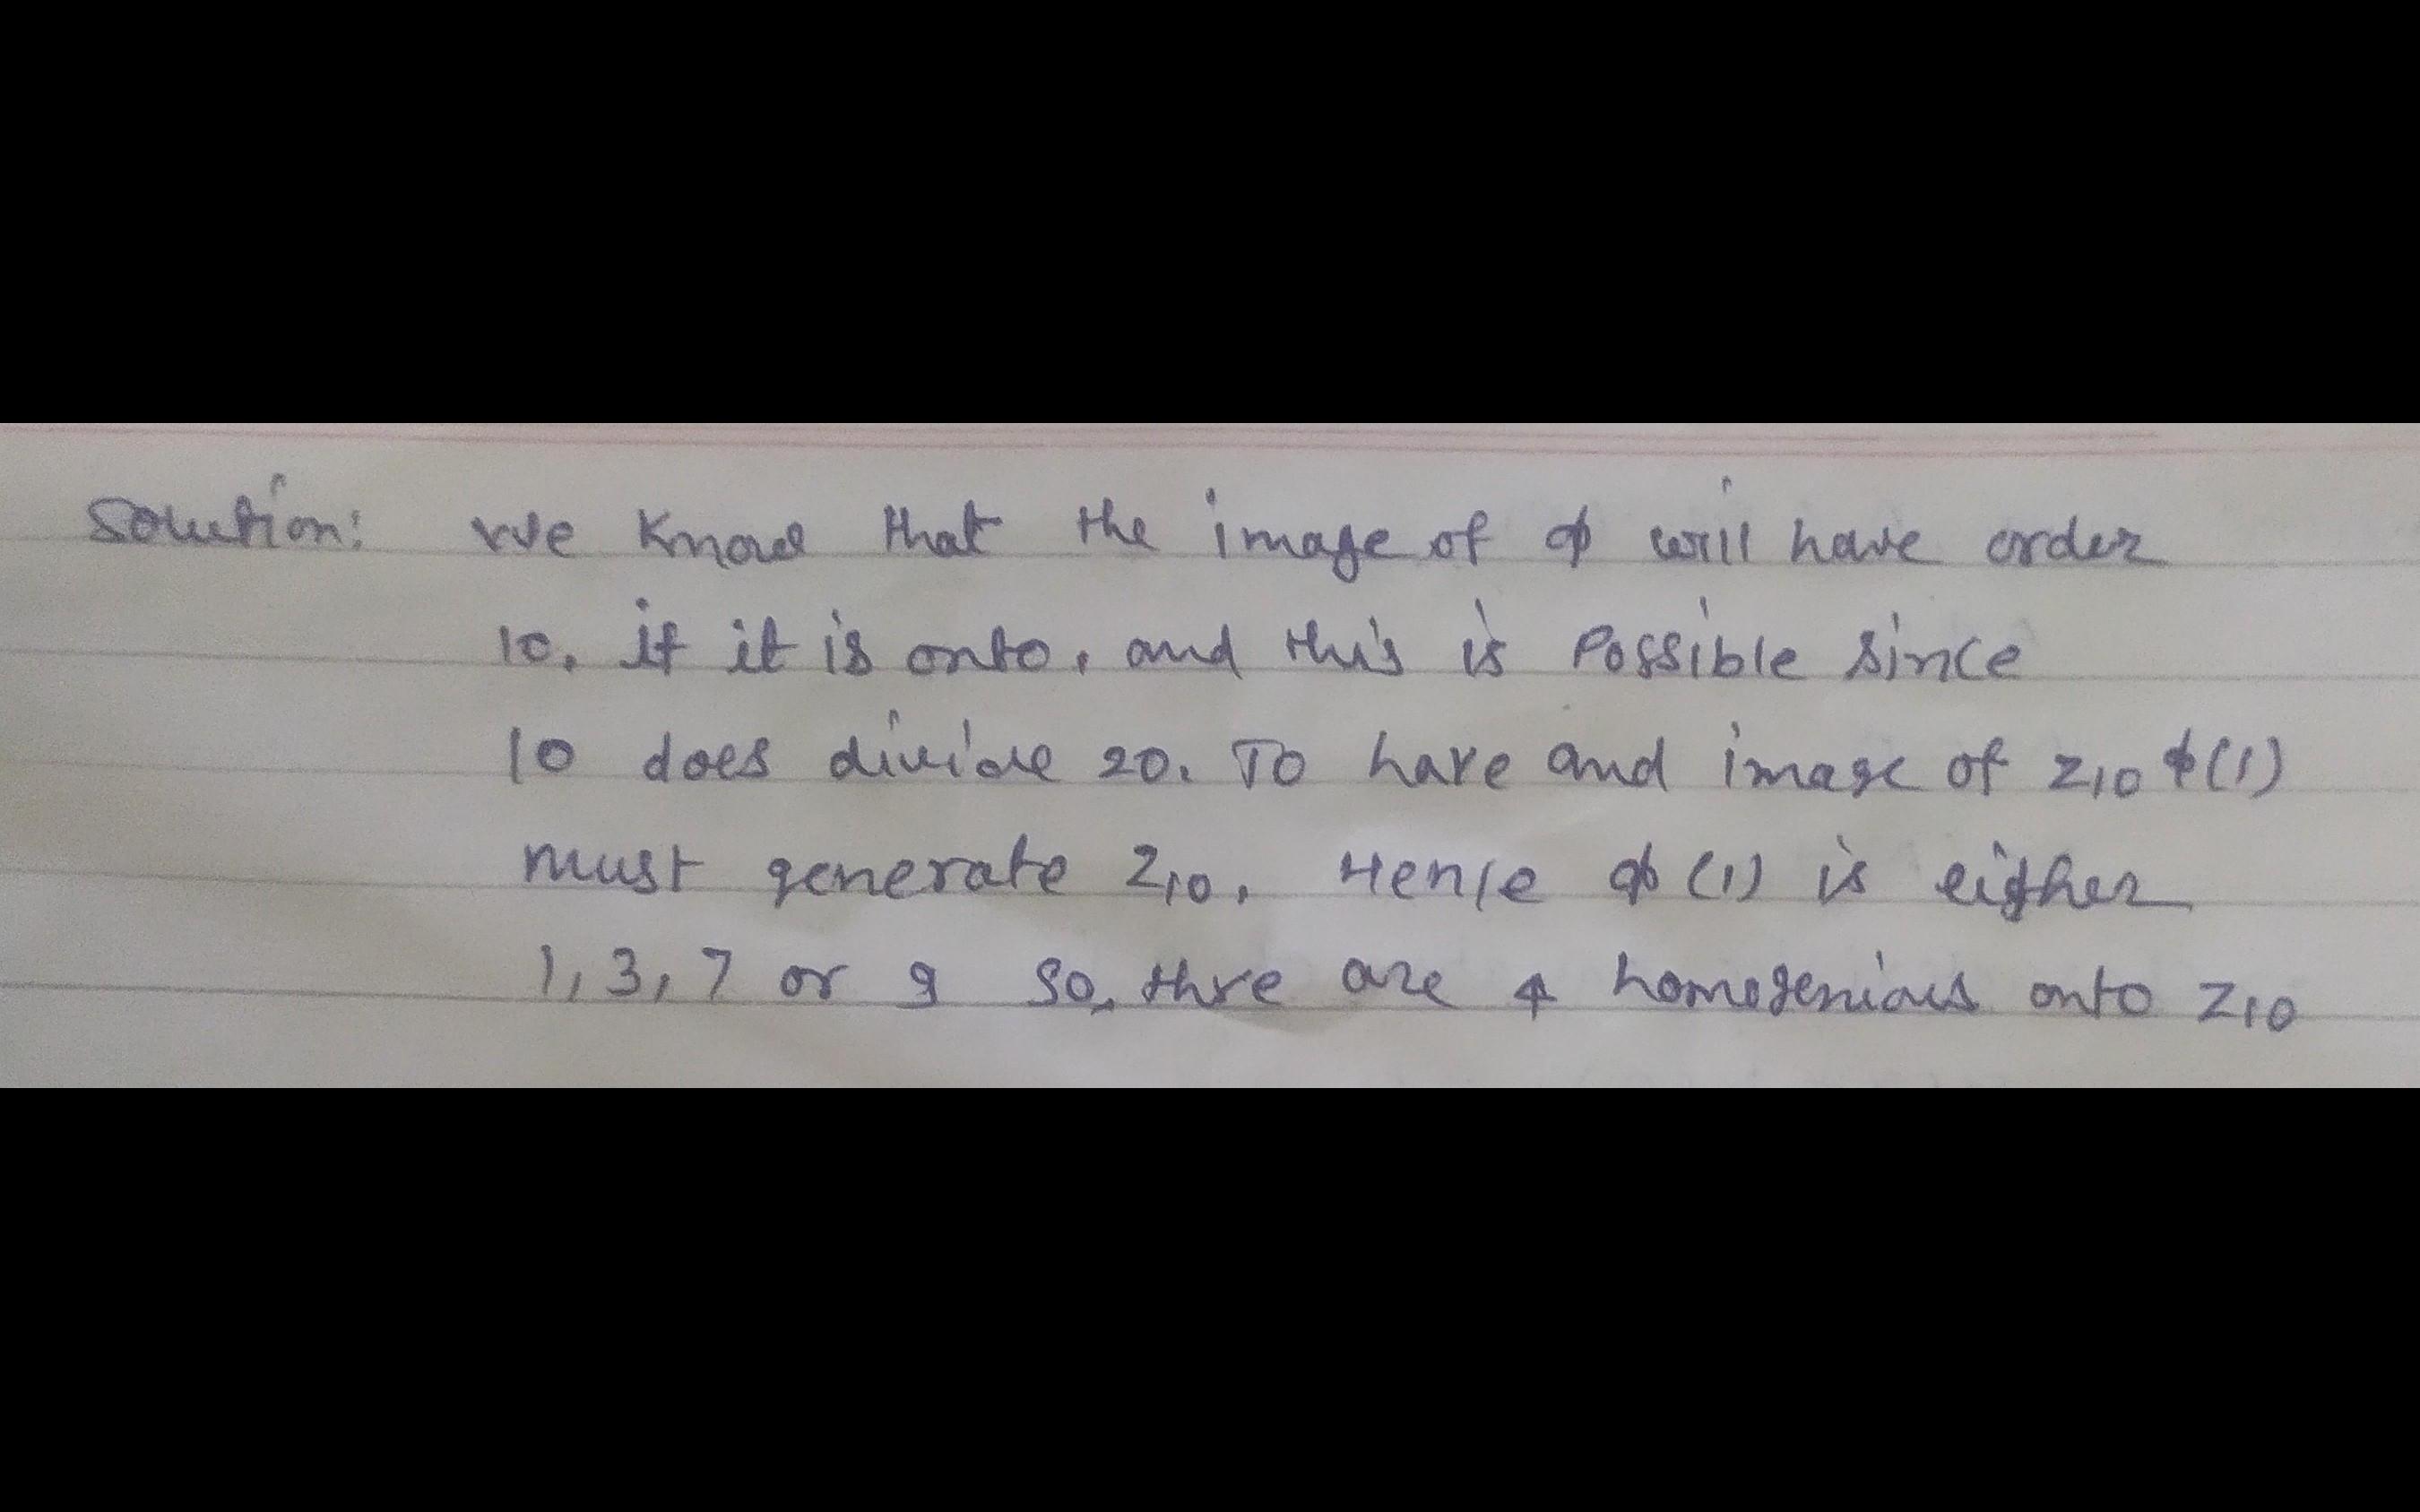 Solution: We know that the image of φ will have order
10. if it is onto, and this is Possible since
10 does divide 20. To have and image of Z10 φ(1)
must generate Z10. Hence φ(1) is either
1, 3, 7 or 9 So, thre are 4 homogenious onto Z10